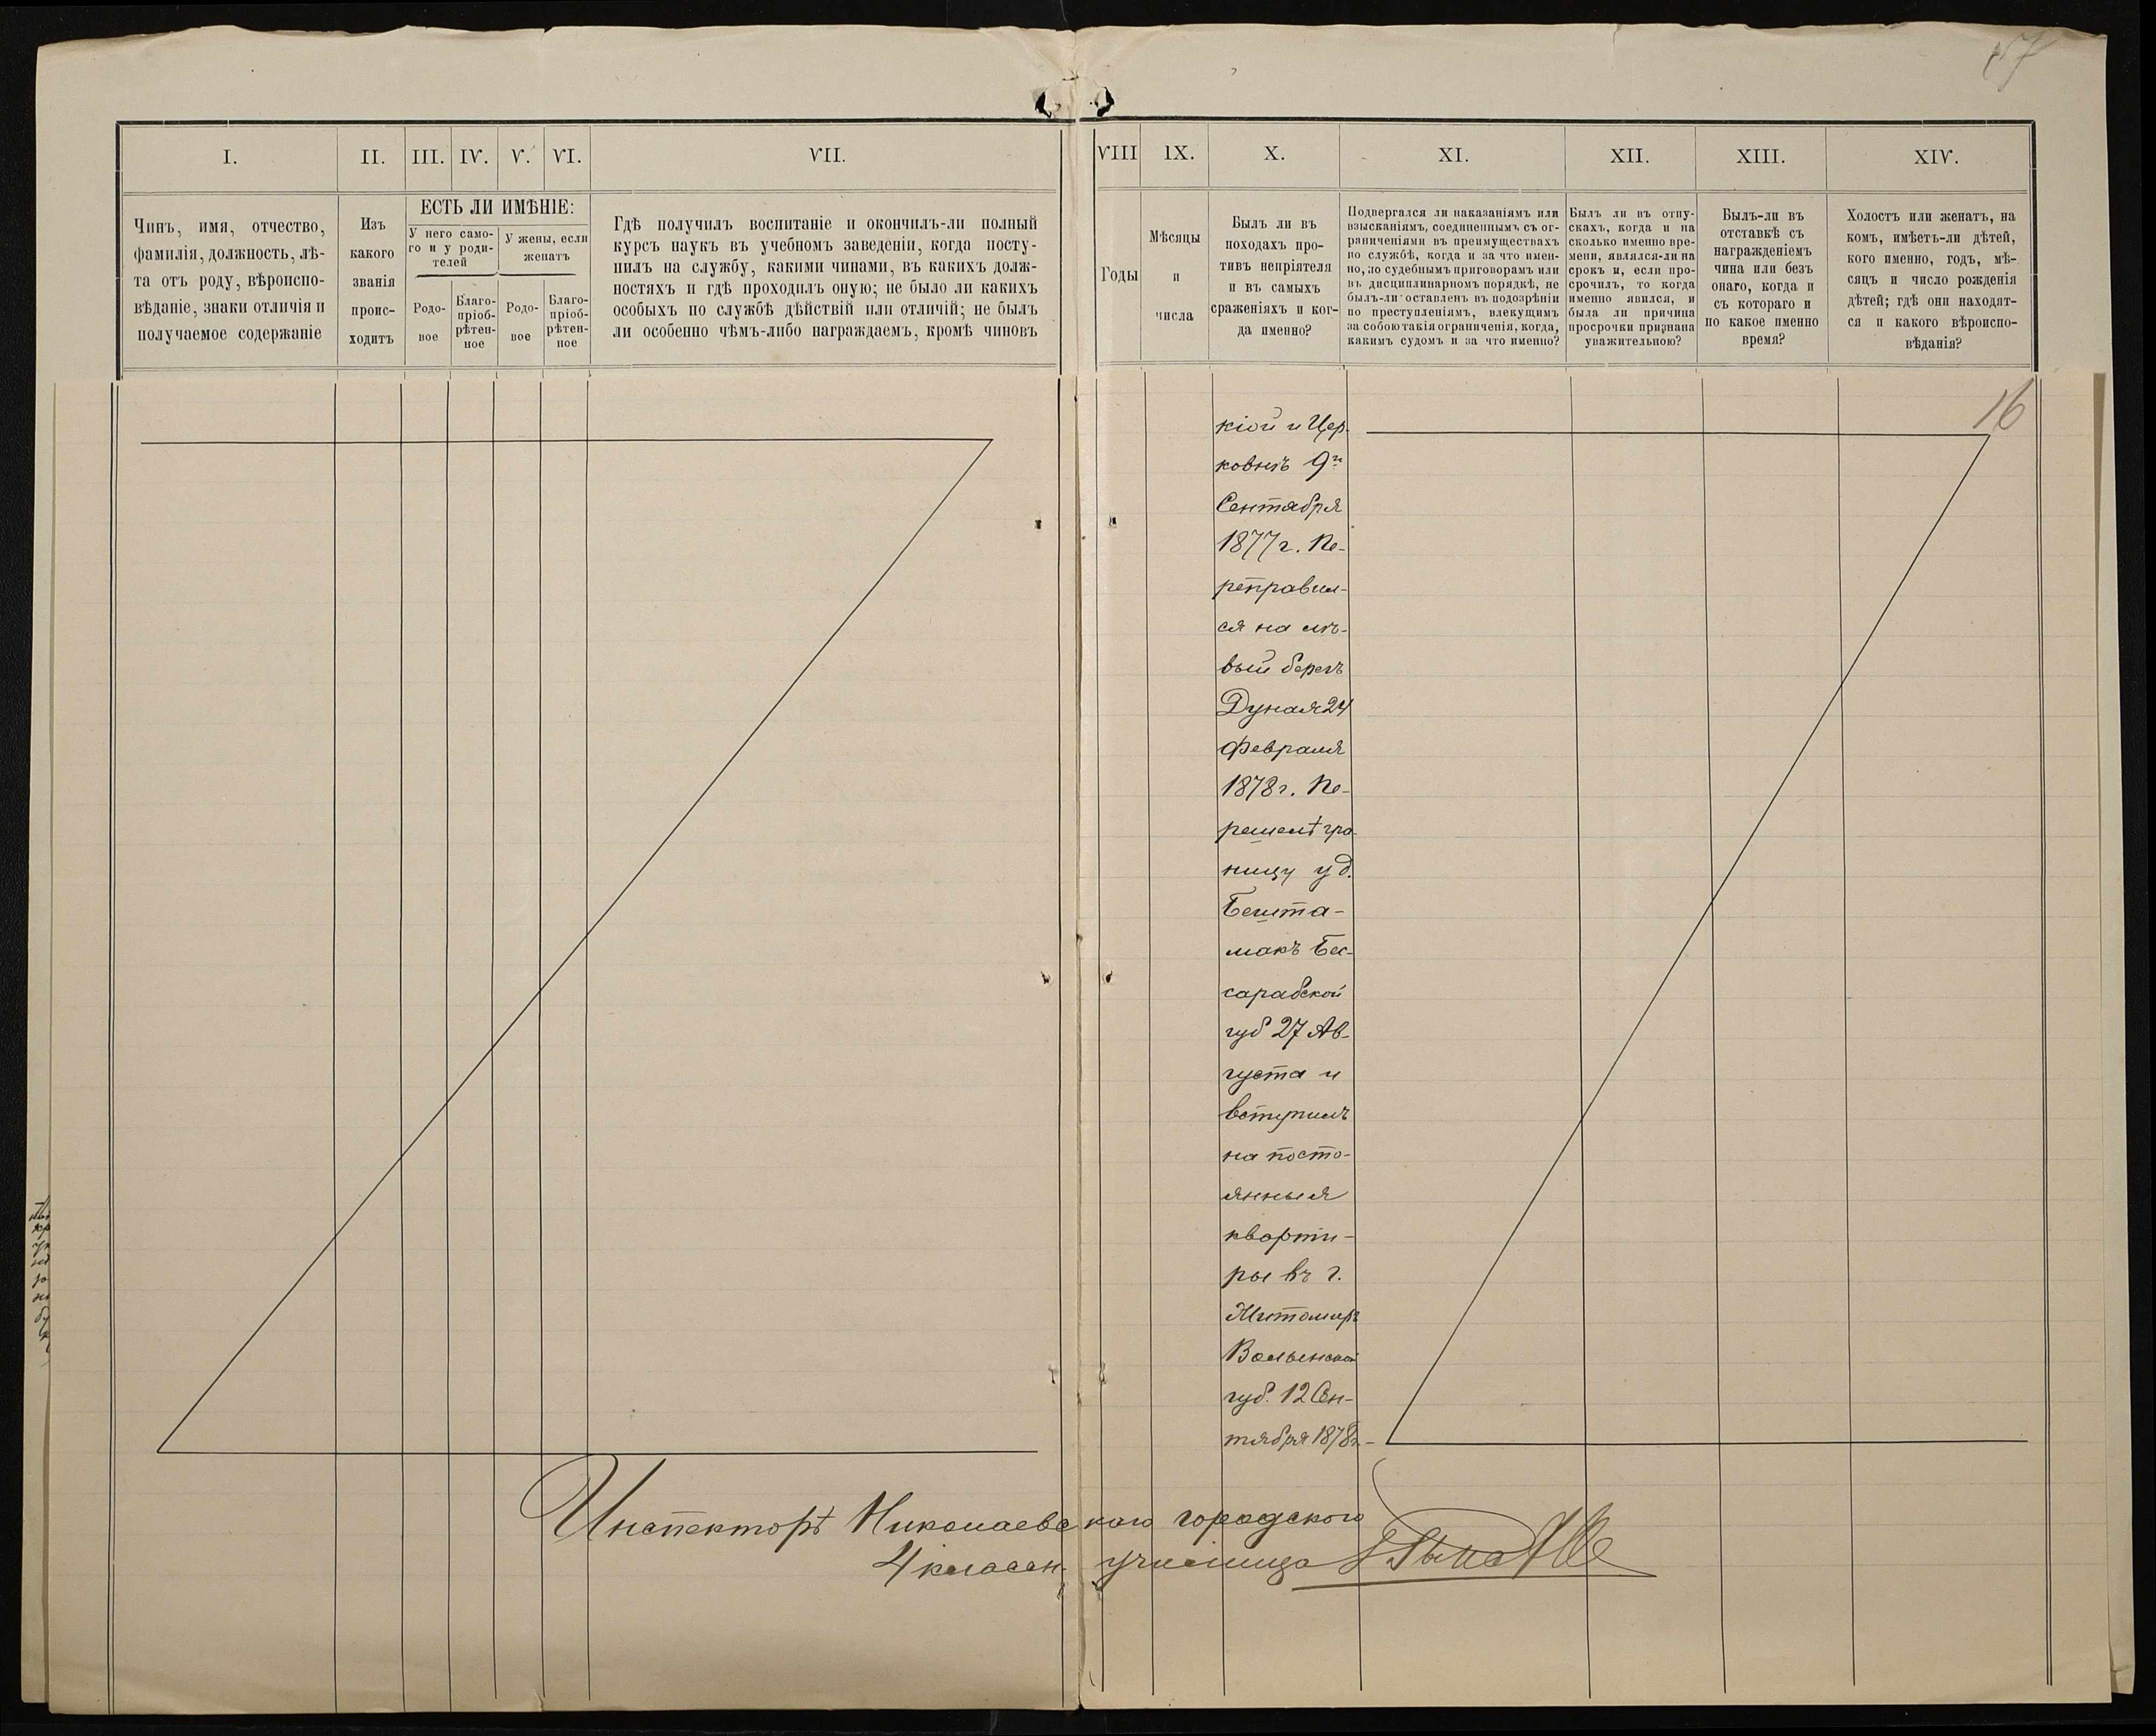 I.
II.
III.
IV.
V.
VI.
VII.
VIII
IX.
X.
XI.
XII.
XIII.
XIV.
Чинъ, имя, отчество,
фамилія, должность, лѣ-
та отъ роду, вѣроиспо-
вѣданіе, знаки отличія и
получаемое содержаніе
Изъ
какого
званія
проис-
ходитъ
ЕСТЬ ЛИ ИМѢНІЕ:
У него само-
го и у роди-
телей
У жены, если
женатъ
Родо-
вое
Благо-
пріоб-
рѣтен-
ное
Родо-
вое
Благо-
пріоб-
рѣтен-
ное
Гдѣ получилъ воспитаніе и окончилъ-ли полный
курсъ наукъ въ учебномъ заведеніи, когда посту-
пилъ на службу, какими чинами, въ какихъ долж-
ностяхъ и гдѣ проходилъ оную; не было ли какихъ
особыхъ по службѣ дѣйствій или отличій; не былъ
ли особенно чѣмъ-либо награждаемъ, кромѣ чиновъ
Годы
Мѣсяцы
и
числа
Былъ ли въ
походахъ про-
тивъ непріятеля
и въ самыхъ
сраженіяхъ и ког-
да именно?
Подвергался ли наказаніямъ или
взысканіямъ, соединеннымъ съ ог-
раниченіями въ преимуществахъ
по службѣ, когда и за что имен-
но, по судебнымъ приговорамъ или
въ дисциплинарномъ порядкѣ, не
былъ-ли оставленъ въ подозрѣніи
по преступленіямъ, влекущимъ
за собою такія ограниченія, когда,
какимъ судомъ и за что именно?
Былъ ли въ отпу-
скахъ, когда и на
сколько именно вре-
мени, являлся-ли на
срокъ и, если про-
срочилъ, то когда
именно явился, и
была ли причина
просрочки признана
уважительною?
Былъ-ли въ
отставкѣ съ
награжденіемъ
чина или безъ
онаго, когда и
съ котораго и
по какое именно
время?
Холостъ или женатъ, на
комъ, имѣетъ-ли дѣтей,
кого именно, годъ, мѣ-
сяцъ и число рожденія
дѣтей; гдѣ они находят-
ся и какого вѣроиспо-
вѣданія?
16
кіой и Цер-
ковнѣ 9го
Сентября
1877 г. Пе-
реправил-
ся на лѣ-
вый берегъ
Дуная 24
Февраля
1878 г. Пе-
решелъ гра-
ницу у д.
Бешта-
макъ Бес-
сарабской
губ 27 Ав-
густа и
вступилъ
на посто-
янныя
кварти-
ры въ г.
Житомирѣ
Волынской
губ. 12 Сен-
тября 1878 г.
Инспекторъ Николаевскаго городского
4 классн. училища